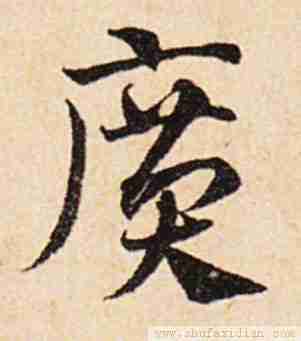 廣
www.shufaxidian.com